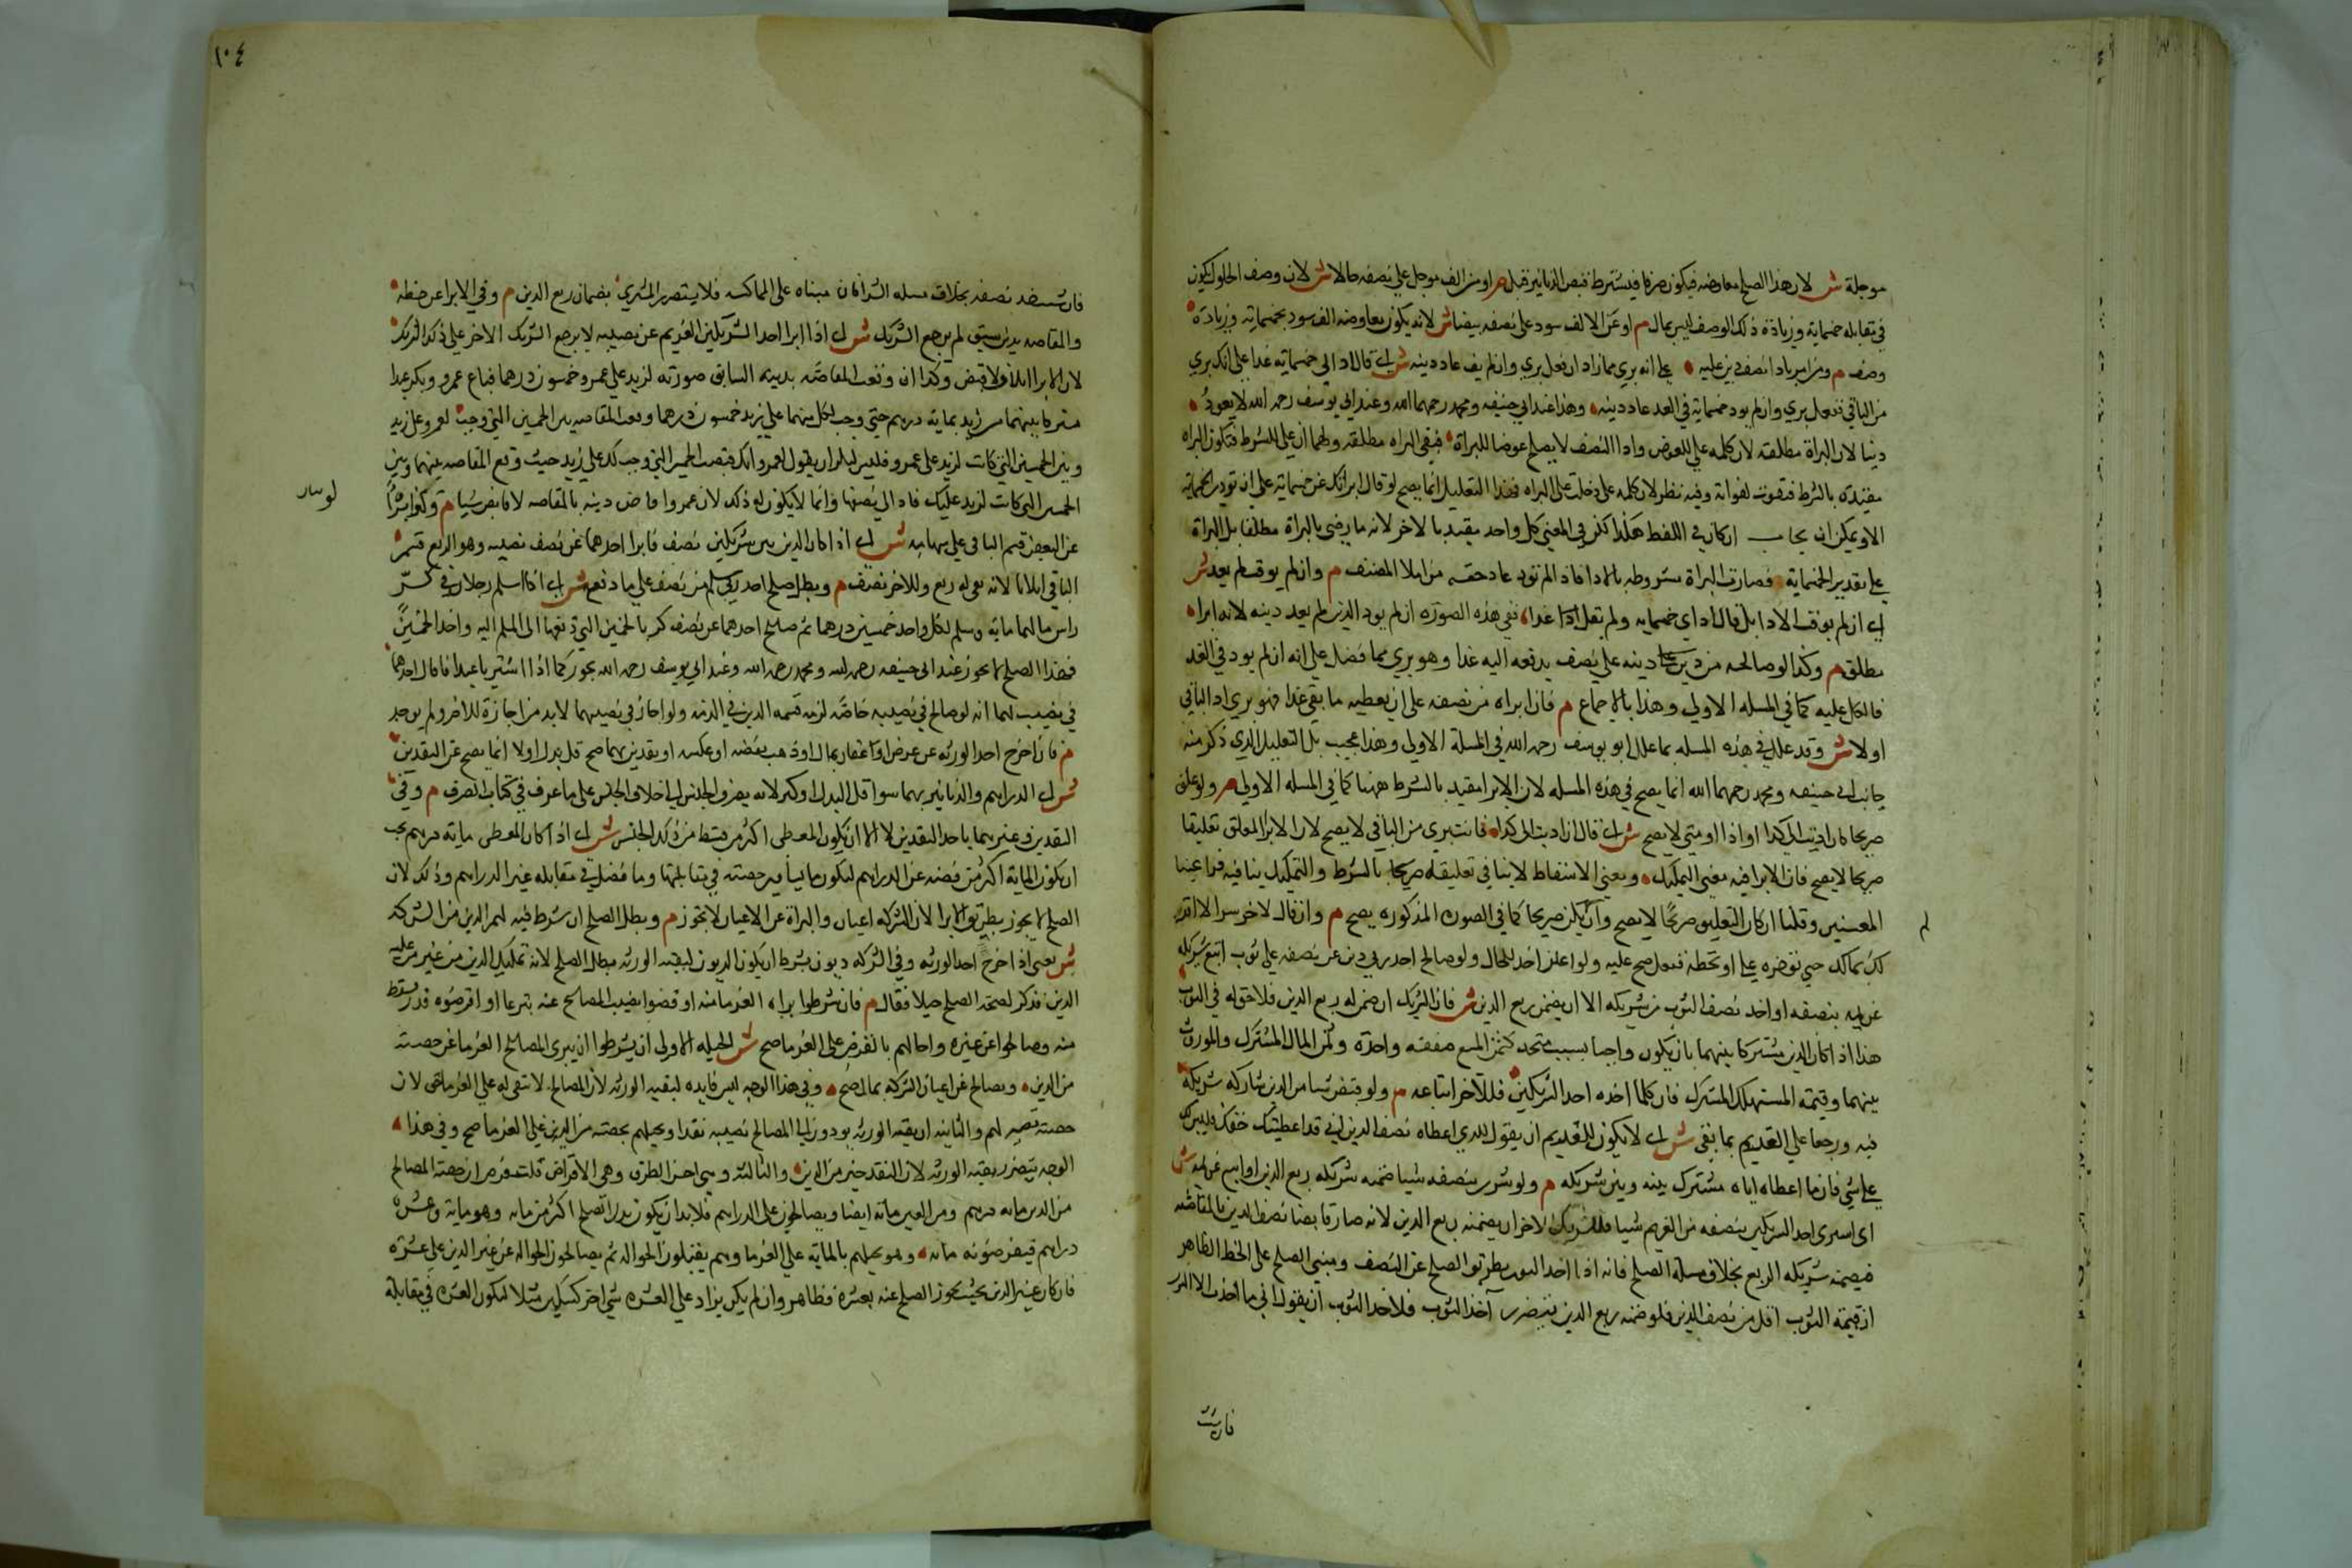 موجلة ش لان هذا الصلح معاوضه فيكون صرفا فيشترط قبض الدنانير قبل م او من الف موجل علي نصفه حالا ش لان وصف الحلول يكون
في مقابله خمسماية وزيادة ذلك الوصف ليس بمال م او عن الالف سود علي نصفه بيضا ش لانه يكون معاوضه الف سود بخمسماية وزيادة
وصف م ومن امر باداء نصف دين عليه علي انه بري مما زاد ان فعل بري وان لم يف عاد دينه ش اي قال اد الي خمسماية غدا علي انك بري
من الباقي ففعل بري وان لم يود خمسماية في الغد عاد دينه وهذا عند ابي حنيفه ومحمد رحمهما الله وعند ابي يوسف رحمه الله لا يعود
دينا لان البراة مطلقه لان كلمه علي للعوض واداء النصف لا يصلح عوضا للبراة فبقي البراه مطلقه ولهما ان علي للشرط فتكون البراه
مقيدة بالشرط فتفوت لفواته وفيه نظر لان كلمه علي دخلت علي البراه فهذا التعليل انما يصح لو قال ابراتك عن خمسماية علي ان تودي الخمسماية
الاو يمكن ان يجاب ان كان في اللفظ هكذا لكن في المعني كل واحد مقيد بالاخر لانه ما رضي بالبراة مطلقا بل البراة
علي تقدير الخمسماية فصارت البراة مشروطه بالاداء فاذا لم تود عاد حقه من املا المصنف م وان لم يوقت لم يعد ش
اي ان لم يوقت الاداء بل قال اد اي خمسمايه ولم يقل غدا ففي هذه الصوره ان لم يود الدين لم يعد دينه لانه ابراء
مطلق م وكذا لو صالحه من دينه علي نصف يدفعه اليه غدا وهو بري مما فضل علي انه ان لم يود في الغد
فالكل عليه كما في المسله الاولي وهذا بالاجماع م فان ابراه من نصفه علي ان يعطيه ما بقي غدا فهو بري اد الباقي
او لا ش وقد علل في هذه المسله بما علل ابو يوسف رحمه الله في المسلة الاولي وهذا عجيب بل التعليل الذي ذكر منه
جانب ابي حنيفه ومحمد رحمهما الله انما يصح في هذه المسله لان الابراء مقيد بالشرط ههنا كما في المسله الاولي م ولو علق
صريحا كان اديت الي كذا او اذا او متي لا يصح ش اي قال ان اديت الي كذا فانت بري من الباقي لا يصح لان الابراء المعلق تعليقا
صريحا لا يصح فان الابرا فيه معني التمليك ومعني الاسقاط لا ينافي تعليقه صريحا بالشرط والتمليك ينافيه فراعينا
المعنيين وقلنا ان كان التعليق صريحا لا يصح وان لم يكن صريحا كما في الصوره المذكوره يصح م وان قال لاخر سرا لا اقر
لك بمالك حتي توخره علي او تحطه ففعل صح عليه ولو اعلن اخذ للحال ولو صالح احد ربي دين عن نصفه علي ثوب اتبع شريكه
غريمه بنصفه او اخذ نصف الثوب من شريكه الا ان يضمن ربع الدين ش فان الشريك ان ضمن له ربع الدين فلا حق له في الثوب
هذا اذا كان الدين مشتركا بينهما بان يكون واجبا بسبب متحد كثمن المبيع صفقه واحدة وثمن المال المشترك والموروث
بينهما وقيمة المستهلك المشترك فان كلما اخذه احد الشريكين فللاخر اتباعه م ولو قبض شيا من الدين شاركه شريكه
فيه ورجعا علي الغريم بما بقي ش اي لا يكون للغريم ان يقول للذي اعطاه نصف الدين اني قد اعطيتك حقك وليس لك
علي شي فان ما اعطاه اياه مشترك بينه وبين شريكه م ولو شري بنصفه شيا ضمنه شريكه ربع الدين او اتبع غريمه ش
اي اشتري احد الشريكين بنصفه من الغريم شيا فللشريك الاخر ان يضمنه ربع الدين لانه صار قابضا نصف الدين بالمقاصه
فيضمنه شريكه الربع بخلاف مسلة الصلح فانه اذا اخذ الثوب بطريق الصلح عن النصف ومبني الصلح علي الحط الظاهر
ان قيمة الثوب اقل من نصف الدين فلو ضمنه ربع الدين يتضرر آخذ الثوب فلاخذ الثوب ان يقول اني ما اخذت الا الثوب
لم
فان شئت
١٠٤
فان شئت خذ نصفه بخلاف مسله الشراء فان مبناه علي المماكسه فلا يتضرر المشتري بضمان ربع الدين م وفي الابرا عن حظه
والمقاصه بدين سبق لم يرجع الشريك ش اي اذا ابرا احد الشريكين الغريم عن نصيبه لا يرجع الشريك الاخر علي ذلك الشريك
لان الابرا اتلاف لا قبض وكذا ان وقعت المقاصه بدينه السابق صورته لزيد علي عمرو خمسون درهما فباع عمرو وبكر عبدا
مشتركا بينهما من زيد بماية درهم حتي وجب لكل منهما علي زيد خمسون درهما وقعت المقاصه بين الخمسين التي وجبت لعمرو علي زيد
وبين الخمسين التي كانت لزيد علي عمرو فليس لبكر ان يقول لعمرو انك قبضت الخمسين التي وجب لك علي زيد حيث وقع المقاصه بينها وبين
الخمسين التي كانت لزيد عليك فاد الي نصفها وانما لا يكون له ذلك لان عمروا قاض دينه بالمقاصه لا قابض شيا م وكذا
عن البعض قسم الباقي علي سهامه ش اي اذا كان الدين بين شريكين نصف فابرا احدهما عن نصف نصيبه وهو الربع قسم
الباقي اثلاثا لانه بقي له ربع وللاخر نصف م وبطل صلح احد ربي سلم من نصف علي ما دفع ش اي اذا اسلم رجلان في كر
راس مالهما مايه وسلم لكل واحد خمسين درهما ثم صالح احدهما عن نصف كر بالخمسين التي دفعها الي المسلم اليه واخذ الخمسين
فهذا الصلح لا يجوز عند ابي حنيفه رحمه الله ومحمد رحمه الله وعند ابي يوسف رحمه الله يجوز كما اذا اشتريا عبدا فاقال احدهما
في نصيبه لهما انه لو صالح في نصيبه خاصه لزم قسمه الدين في الذمه ولو جاز في نصيبهما لابد من اجازة للاخر ولم يوجد
م فان اخرج احد الورثه عن عرض او عقار بمال او ذهب بفضه او عكسه او نقدين بهما صح قل بدله او لا انما يصح عن النقدين
ش اي الدراهم والدنانير بهما سوا قل البدل او كثر لانه يصرف الجنس الي خلاف الجنس علي ما عرف في كتاب الصرف م وفي
النقدين وغيرهما باحد النقدين لا الا ان يكون المعطي اكثر من قسطه من ذلك الجنس ش اي اذا كان المعطي ماية درهم يجب
ان يكون الماية اكثر من حصته من الدراهم ليكون ما يساوي حصته في مقابلتها وما فضل في مقابله غير الدراهم وذلك لان
الصلح لا يجوز بطريق الابرا لان التركه اعيان والبراة عن الاعيان لا تجوز م وبطل الصلح ان شرط فيه لهم الدين من التركه
ش يعني اذا اخرج احد الورثه وفي التركه ديون بشرط ان يكون الديون لبقيه الورثه بطل الصلح لانه تمليك الدين من غير من عليه
الدين فذكر لصحة الصلح حيلا فقال م فان شرطوا براه الغرما منه او قضوا نصيب المصالح عنه تبرعا او اقرضوه قدر قسطه
منه وصالحوا عن غيره واحالهم بالقرض علي الغرما صح ش الحيله الاولي ان يشرطوا ان يبري المصالح الغرما عن حصته
من الدين ويصالح عن اعيان التركه بمال صح وفي هذا الوجه ليس فايده لبقيه الورثه لان المصالح لا تبقي له علي الغرما حق لان
حصته تصير لهم والثانيه ان بقيه الورثه يودون الي المصالح نصيبه نقدا ويحيلهم بحصته من الدين علي الغرما صح وفي هذا
الوجه يتضرر بقيه الورثه لان النقد خير من الدين والثالثه وهي احسن الطرق وهي الاقراض قلت فرض ان حصة المصالح
من الدين مايه درهم ومن العين ماية ايضا ويصالحون علي الدراهم فلا بد ان يكون بدل الصلح اكثر من مايه وهو ماية وعشره
دراهم فيقرضونه مايه وهو يحيلهم بالمايه علي الغرما وهم يقبلون الحواله ثم يصالحون الحواله عن غير الدين علي عشرة
فان كان غير الدين بحيث يجوز الصلح عنه بعشره فظاهر وان لم يكن يزاد علي العشره شي اخر كسكين مثلا ليكون العشره في مقابله